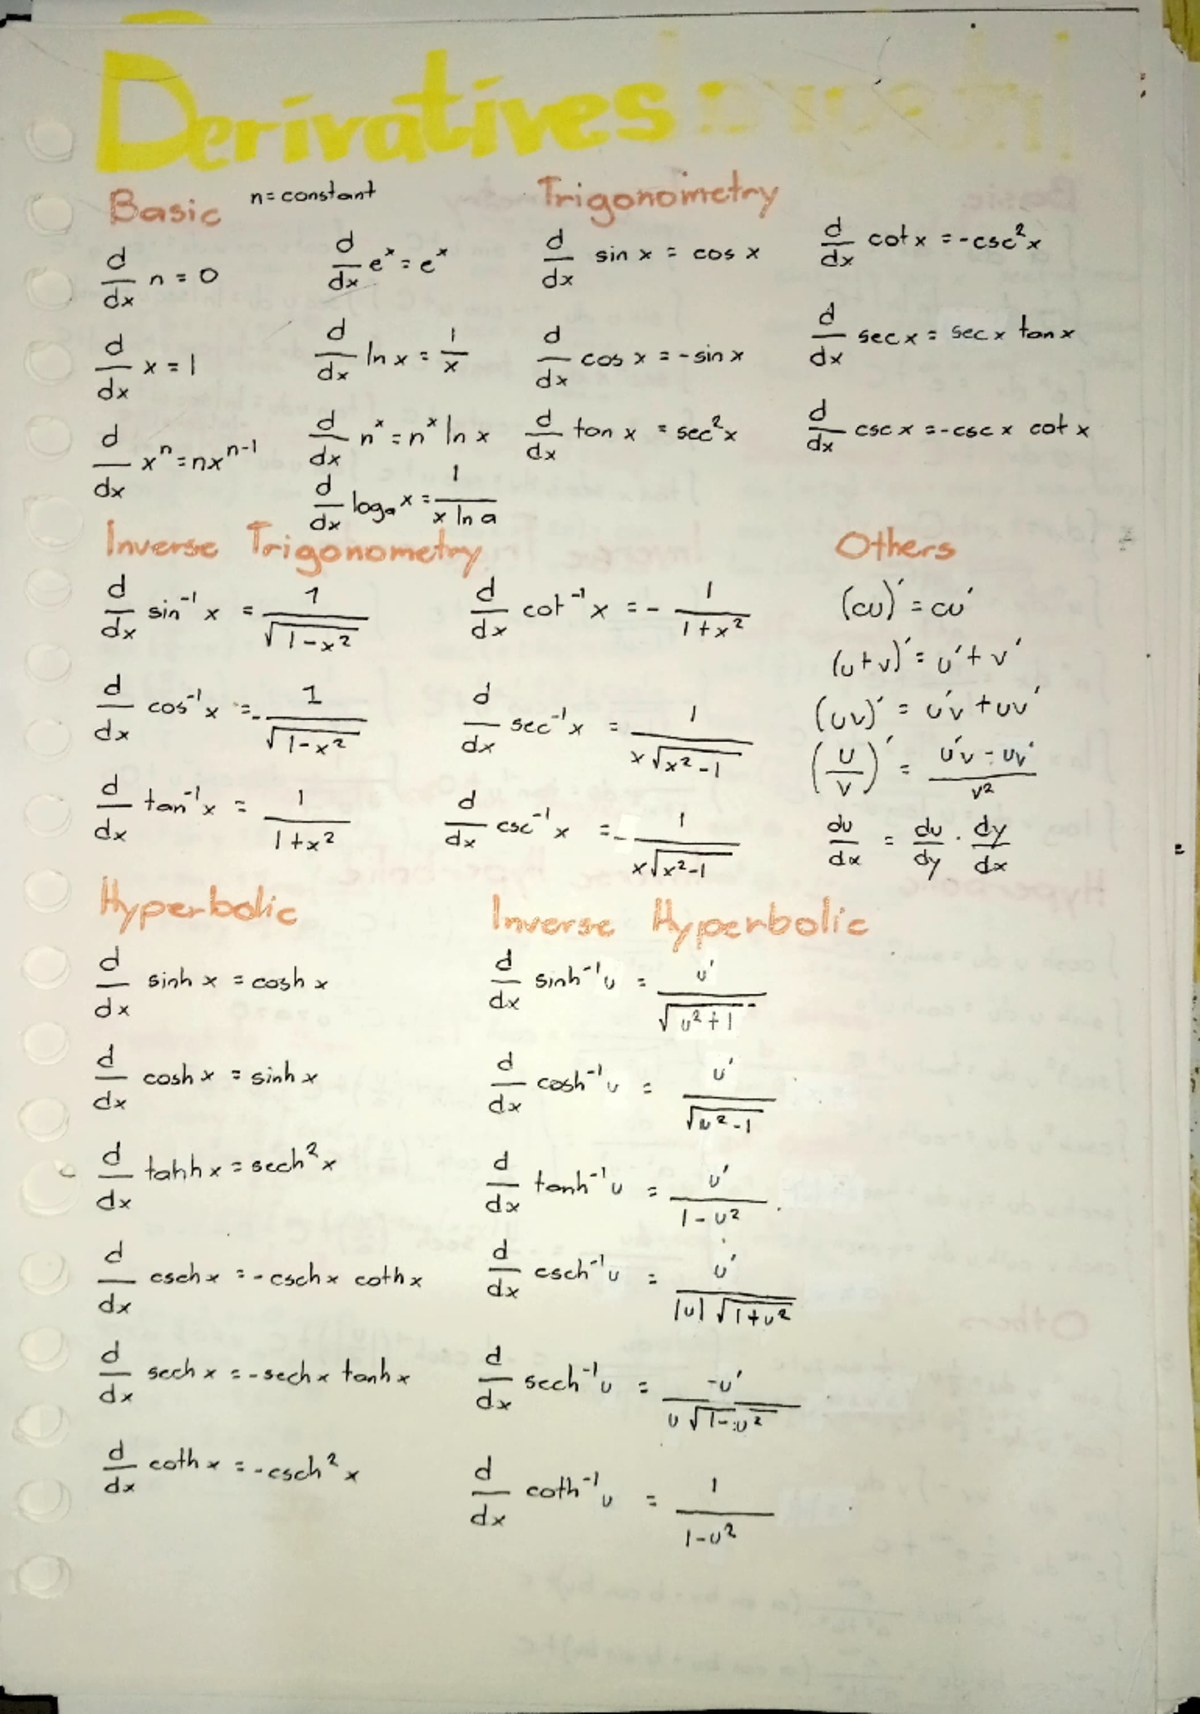 Derivatives
Basic n = constant
d/dx n = 0
d/dx x = 1
d/dx xⁿ = nxⁿ⁻¹
d/dx eˣ = eˣ
d/dx ln x = 1/x
d/dx nˣ = nˣ ln x
d/dx logₐ x = 1/(x ln a)
Trigonometry
d/dx sin x = cos x
d/dx cos x = -sin x
d/dx tan x = sec²x
d/dx cot x = -csc²x
d/dx sec x = sec x tan x
d/dx csc x = -csc x cot x
Inverse Trigonometry
d/dx sin⁻¹x = 1/√(1-x²)
d/dx cos⁻¹x = -1/√(1-x²)
d/dx tan⁻¹x = 1/(1+x²)
d/dx cot⁻¹x = -1/(1+x²)
d/dx sec⁻¹x = 1/(x√(x²-1))
d/dx csc⁻¹x = -1/(x√(x²-1))
Others
(cu)' = cu'
(u+v)' = u'+v'
(uv)' = u'v+uv'
(u/v)' = (u'v-uv')/v²
du/dx = du/dy · dy/dx
Hyperbolic
d/dx sinh x = cosh x
d/dx cosh x = sinh x
d/dx tahh x = sech²x
d/dx csch x = -csch x coth x
d/dx sech x = -sech x tanh x
d/dx coth x = -csch²x
Inverse Hyperbolic
d/dx sinh⁻¹u = u'/√(u²+1)
d/dx cosh⁻¹u = u'/√(u²-1)
d/dx tanh⁻¹u = u'/(1-u²)
d/dx csch⁻¹u = u'/(|u|√(1+u²))
d/dx sech⁻¹u = -u'/(u√(1-u²))
d/dx coth⁻¹u = 1/(1-u²)